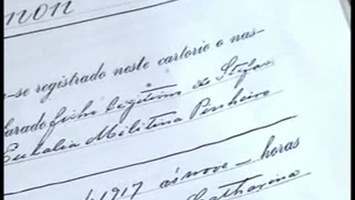 non
-se registrado neste cartorio o nas-
arado filho legitimo de Stefan
Eukalia Militina Penheiro
1917 ás nove - horas
Catharina